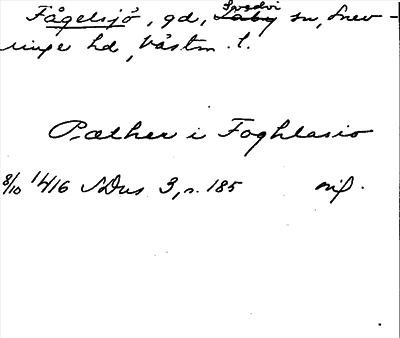 Fågelsjö, gd, Svedvi sn, Snev-
ringe hd, Västm. l.
Pæther i Foghlasio
8/10 1416 SDns 3, s. 185